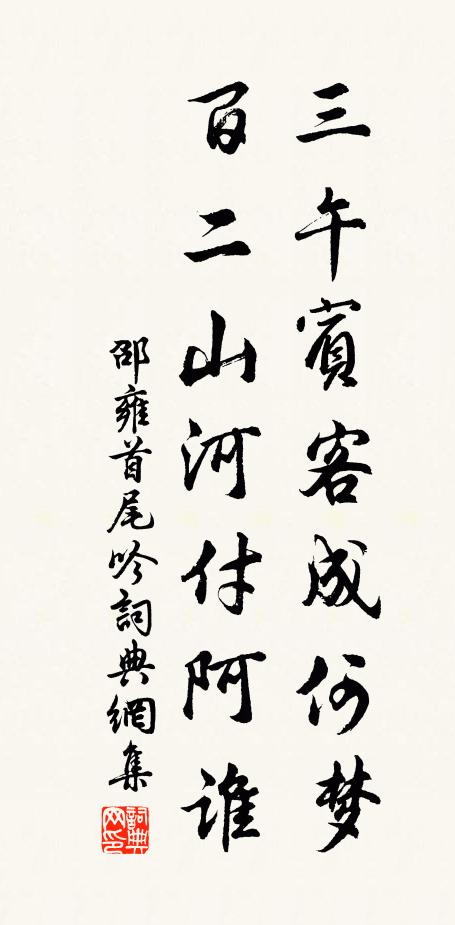 三午賓客成何梦
百二山河付阿誰
邵雍首尾吟詞典網集
詞典网印